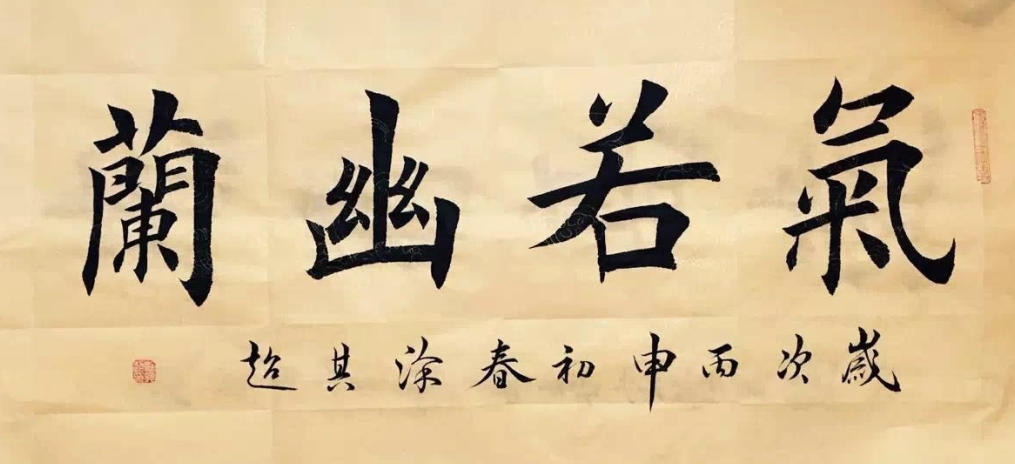 氣若幽蘭
歲次丙申初春涂其超